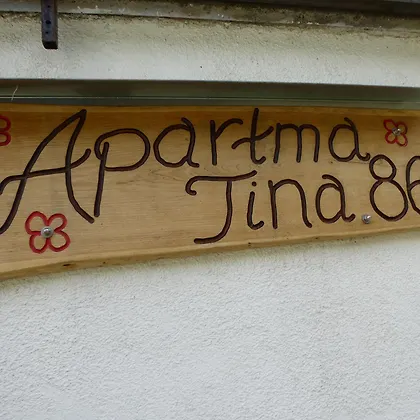 Apartma
Tina.86